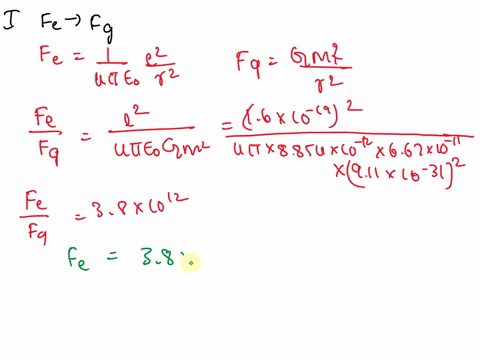 I Fe → Fg
Fe = 1/4πε₀ e²/r²
Fg = Gm²/r²
Fe/Fg = e²/4πε₀Gm² = (1.6 × 10⁻¹⁹)²/4π × 8.854 × 10⁻¹² × 6.67 × 10⁻¹¹
× (9.11 × 10⁻³¹)²
Fe/Fg = 3.8 × 10¹²
Fe = 3.8